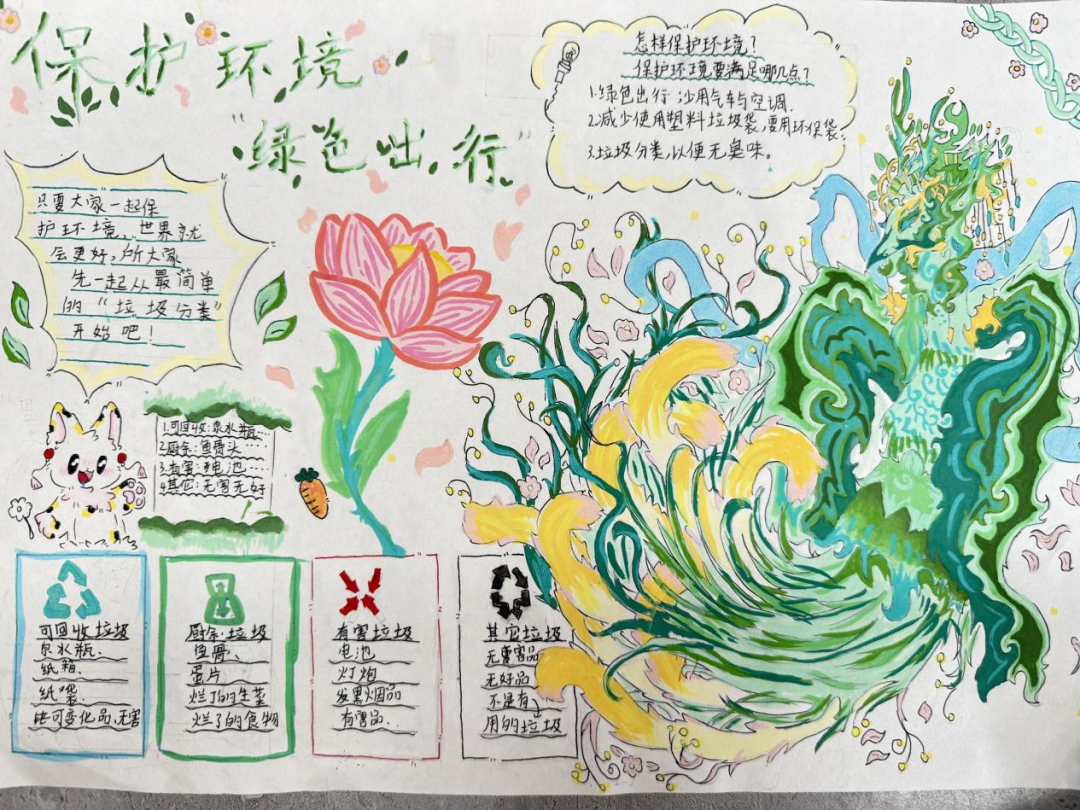 保护环境
"绿色出行"
怎样保护环境?
保护环境要满足哪几点?
1.绿色出行 沙用气车与空调.
2.减少使用塑料垃圾袋,要用环保袋.
3.垃圾分类,以便无臭味。
只要大家一起保
护环境,世界就
会更好,所大家
先一起从最简单
的"垃圾分类"
开始吧!
1.可回收:泉水瓶…
2.厨余:鱼骨头……
3.有害:电池……
4.其它:无害无好
可回收垃圾
泉水瓶.
纸箱.
纸袋.
可变化品、无害
厨余垃圾
鱼骨.
蛋片
烂了的生菜
烂了的食物
有害垃圾
电池
灯炮
发黑烟品
有害品.
其它垃圾
无害品
无好品
不是有
用的垃圾